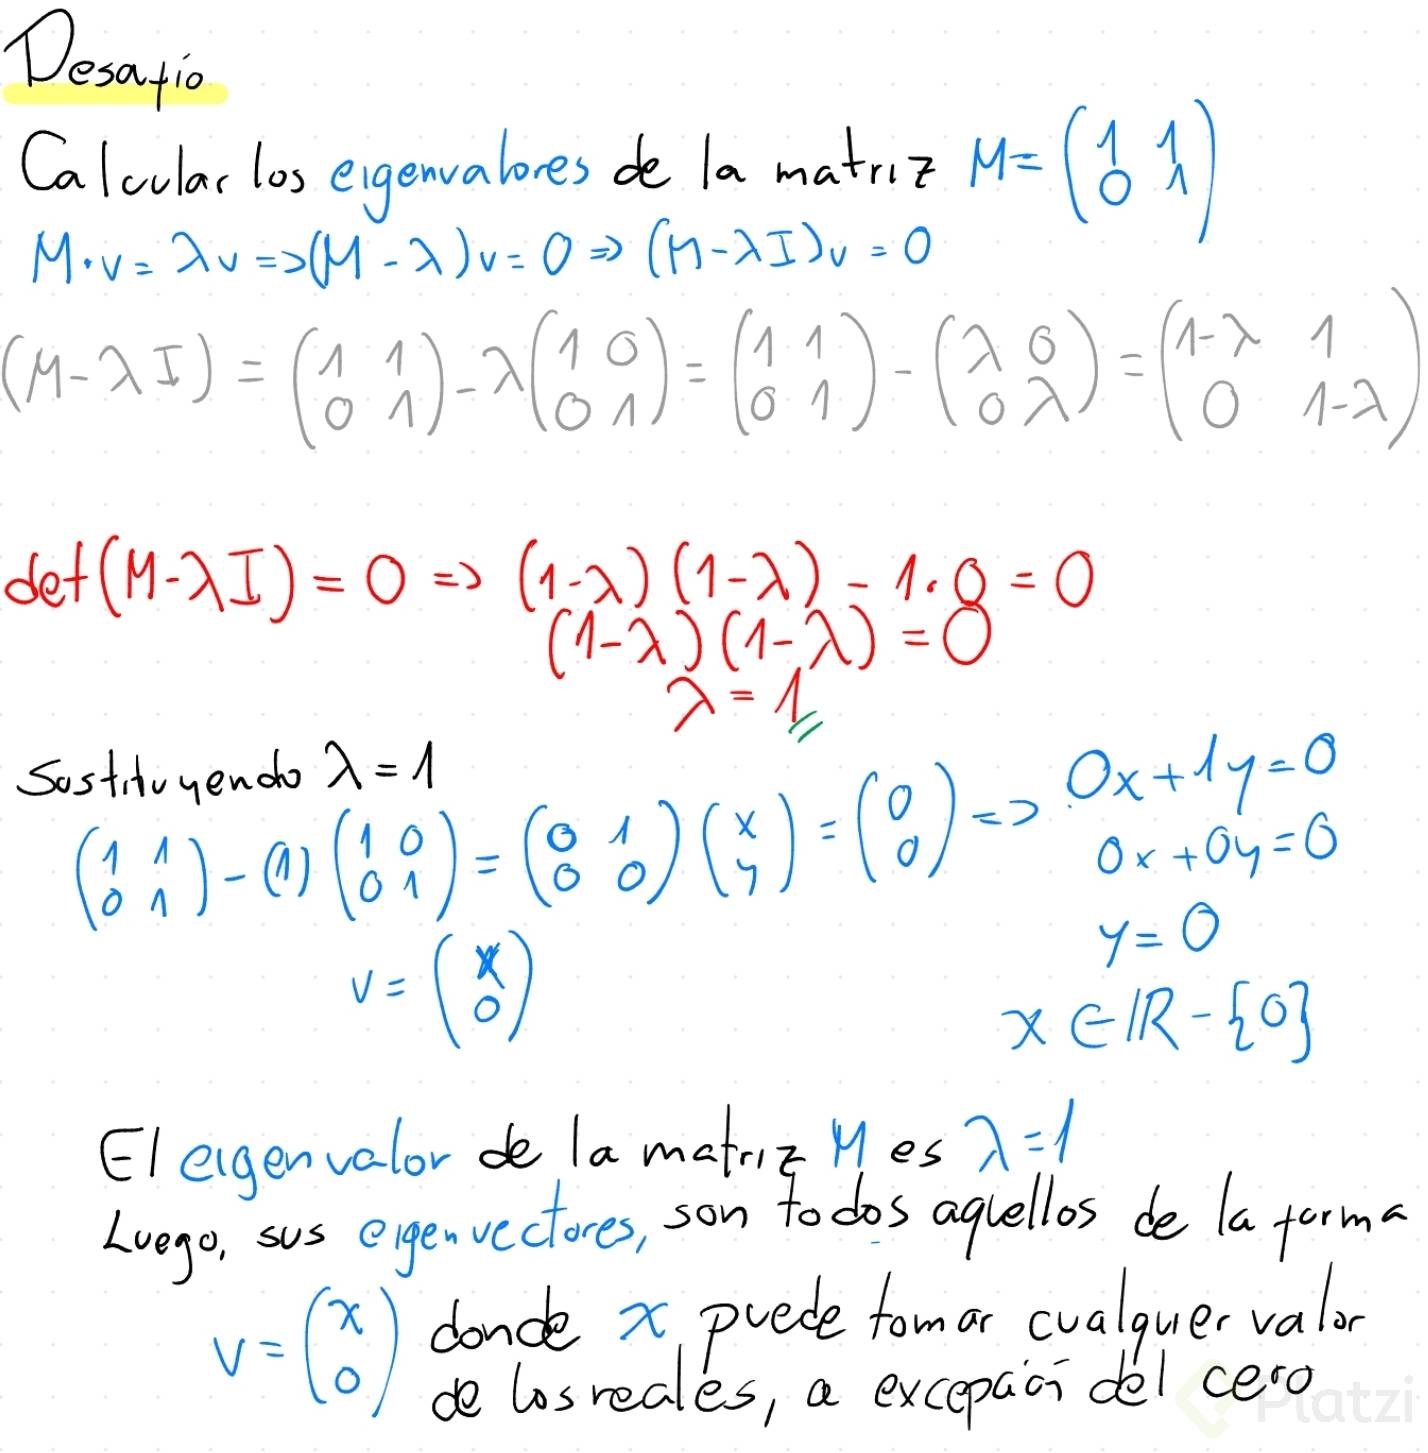 Desafío
Calcular los eigenvalores de la matriz M = (1 1; 0 1)
M·v = λv => (M - λ)v = 0 => (M-λI)v = 0
(M-λI) = (1 1; 0 1) - λ(1 0; 0 1) = (1 1; 0 1) - (λ 0; 0 λ) = (1-λ 1; 0 1-λ)
det(M-λI) = 0 => (1-λ)(1-λ) - 1·0 = 0
(1-λ)(1-λ) = 0
λ = 1
Sustituyendo λ = 1
(1 1; 0 1) - (1)(1 0; 0 1) = (0 1; 0 0)(x; y) = (0; 0) => 0x+1y=0
0x+0y=0
y=0
v = (x; 0)
x ∈ ℝ - {0}
El eigenvalor de la matriz M es λ=1
Luego, sus eigenvectores, son todos aquellos de la forma
v = (x; 0) donde x puede tomar cualquier valor
de los reales, a excepción del cero
Platzi